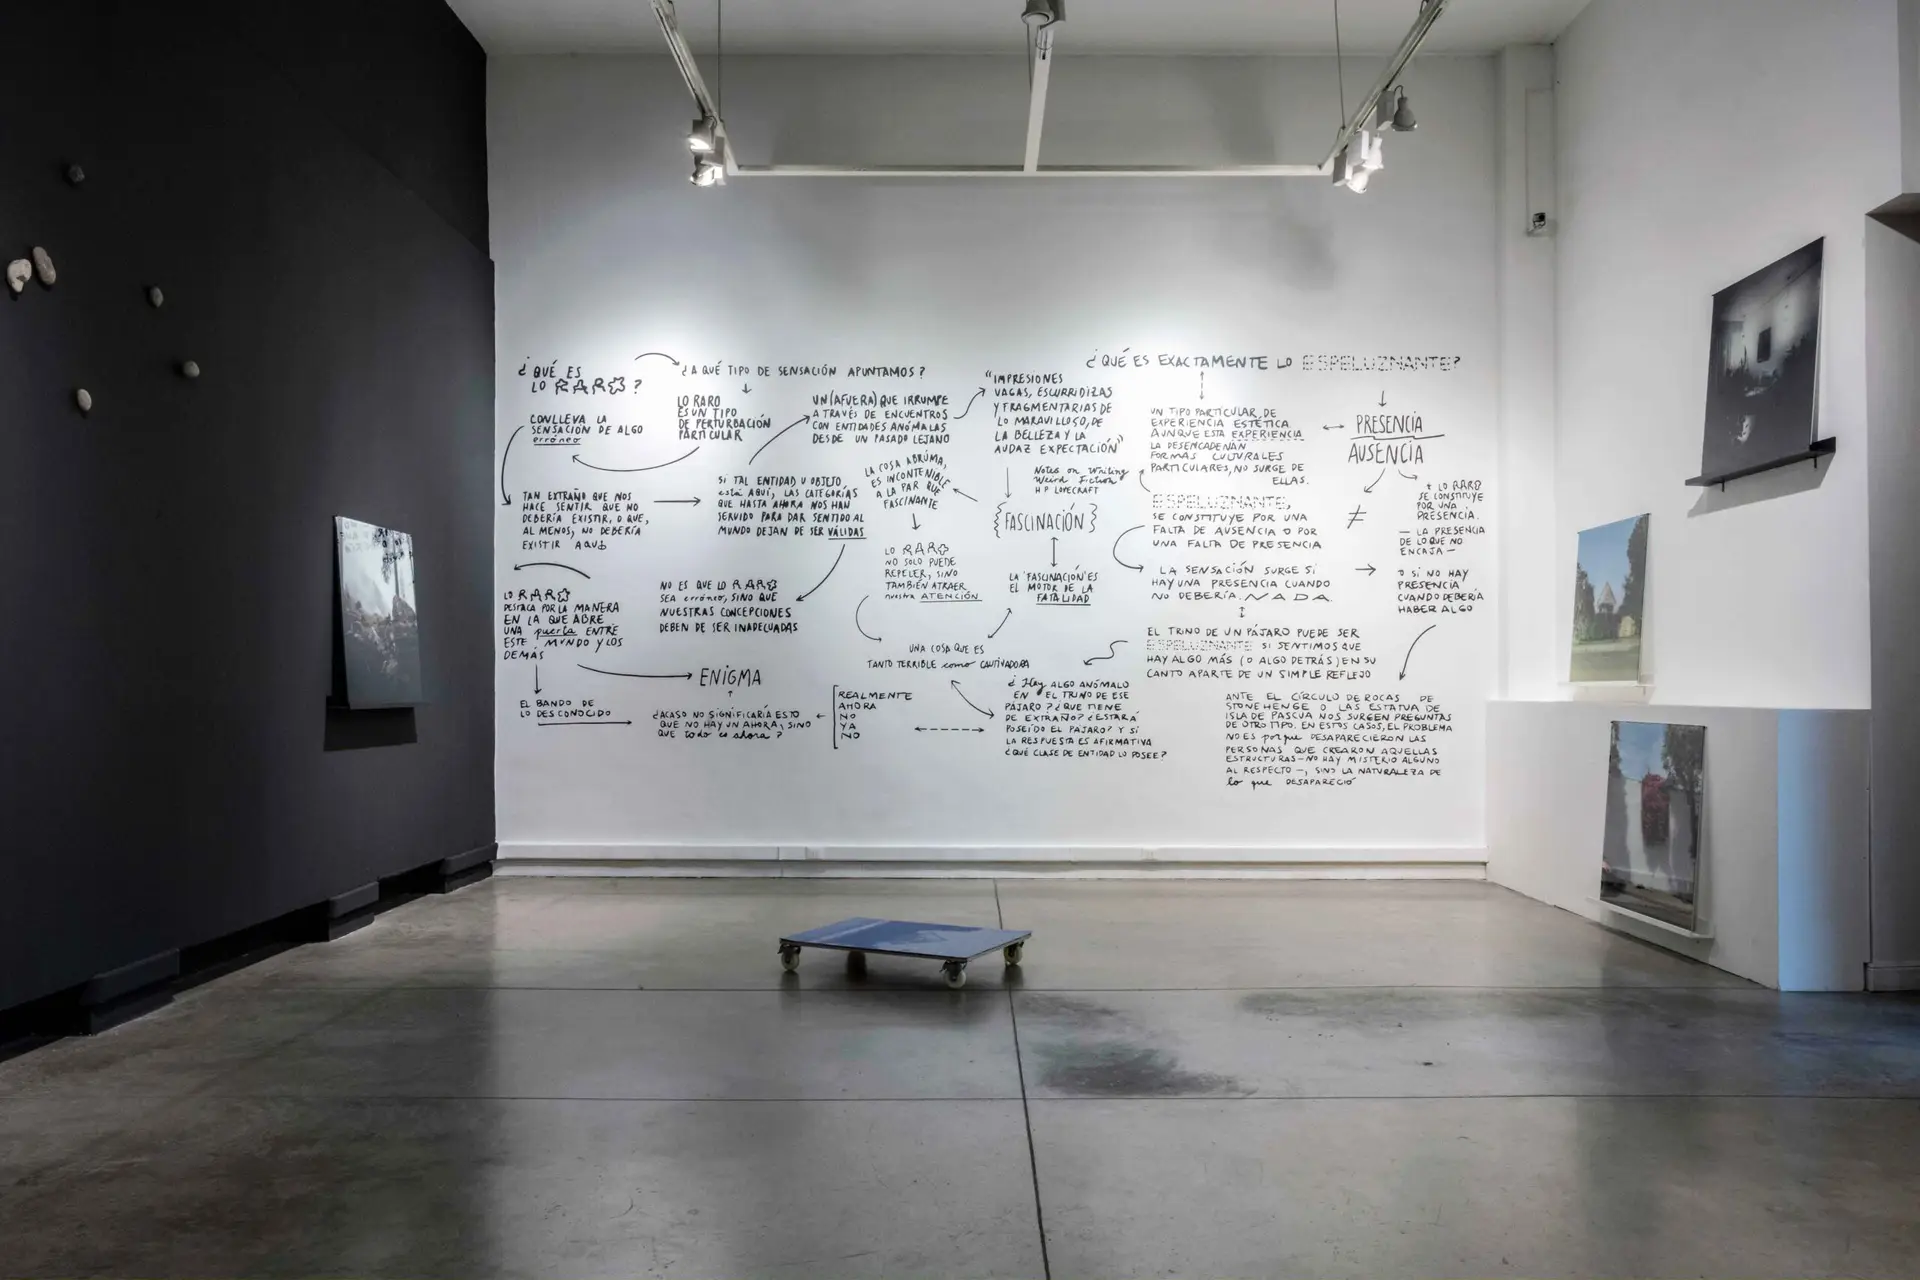 ¿QUÉ ES
LO RARO?
CONLLEVA LA
SENSACIÓN DE ALGO
erróneo
TAN EXTRAÑO QUE NOS
HACE SENTIR QUE NO
DEBERÍA EXISTIR, O QUE,
AL MENOS, NO DEBERÍA
EXISTIR AQUÍ
LO RARO
DESTACA POR LA MANERA
EN LA QUE ABRE
UNA puerta ENTRE
ESTE MUNDO Y LOS
DEMÁS
EL BANDO DE
LO DESCONOCIDO
¿A QUÉ TIPO DE SENSACIÓN APUNTAMOS?
LO RARO
ES UN TIPO
DE PERTURBACIÓN
PARTICULAR
SI TAL ENTIDAD U OBJETO
está AQUÍ, LAS CATEGORÍAS
QUE HASTA AHORA NOS HAN
SERVIDO PARA DAR SENTIDO AL
MUNDO DEJAN DE SER VÁLIDAS
NO ES QUE LO RARO
SEA erróneo, SINO QUE
NUESTRAS CONCEPCIONES
DEBEN DE SER INADECUADAS
ENIGMA
¿ACASO NO SIGNIFICARÍA ESTO
QUE NO HAY UN AHORA, SINO
QUE todo es ahora?
REALMENTE
AHORA
NO
YA
NO
UN (AFUERA) QUE IRRUMPE
A TRAVÉS DE ENCUENTROS
CON ENTIDADES ANÓMALAS
DESDE UN PASADO LEJANO
LA COSA ABRUMA,
ES INCONTENIBLE
A LA PAR QUE
FASCINANTE
LO RARO
NO SOLO PUEDE
REPELER, SINO
TAMBIÉN ATRAER
nuestra ATENCIÓN
UNA COSA QUE ES
TANTO TERRIBLE como CAUTIVADORA
"IMPRESIONES
VAGAS, ESCURRIDIZAS
Y FRAGMENTARIAS DE
LO MARAVILLOSO, DE
LA BELLEZA Y LA
AUDAZ EXPECTACIÓN"
Notes on Writing
Weird Fiction
H P LOVECRAFT
{FASCINACIÓN}
LA 'FASCINACIÓN' ES
EL MOTOR DE LA
FATALIDAD
¿Hay ALGO ANÓMALO
EN EL TRINO DE ESE
PÁJARO? ¿QUE TIENE
DE EXTRAÑO? ¿ESTARÁ
POSEÍDO EL PÁJARO? Y SI
LA RESPUESTA ES AFIRMATIVA
¿QUÉ CLASE DE ENTIDAD LO POSEE?
¿QUÉ ES EXACTAMENTE LO ESPELUZNANTE?
UN TIPO PARTICULAR, DE
EXPERIENCIA ESTÉTICA.
AUNQUE ESTA EXPERIENCIA
LA DESENCADENAN
FORMAS CULTURALES
PARTICULARES, NO SURGE DE
ELLAS.
PRESENCIA
AUSENCIA
≠
ESPELUZNANTE,
SE CONSTITUYE POR UNA
FALTA DE AUSENCIA O POR
UNA FALTA DE PRESENCIA
LA SENSACIÓN SURGE SI
HAY UNA PRESENCIA CUANDO
NO DEBERÍA. NADA.
EL TRINO DE UN PÁJARO PUEDE SER
ESPELUZNANTE SI SENTIMOS QUE
HAY ALGO MÁS (O ALGO DETRÁS) EN SU
CANTO APARTE DE UN SIMPLE REFLEJO
LO RARO
SE CONSTITUYE
POR UNA
PRESENCIA.
— LA PRESENCIA
DE LO QUE NO
ENCAJA —
O SI NO HAY
PRESENCIA
CUANDO DEBERÍA
HABER ALGO
ANTE EL CÍRCULO DE ROCAS DE
STONEHENGE O LAS ESTATUA DE
ISLA DE PASCUA NOS SURGEN PREGUNTAS
DE OTRO TIPO. EN ESTOS CASOS, EL PROBLEMA
NO ES porque DESAPARECIERON LAS
PERSONAS QUE CREARON AQUELLAS
ESTRUCTURAS — NO HAY MISTERIO ALGUNO
AL RESPECTO —, SINO LA NATURALEZA DE
lo que DESAPARECIÓ